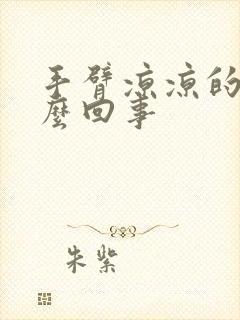 手臂凉凉的
麼回事
朱紫